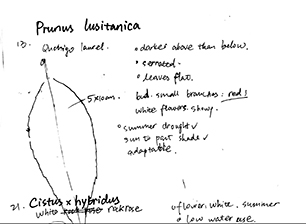 Prunus lusitanica
13. laurel.
• darker above than below.
• serrated
• leaves flat.
5x10cm
bud. small branches: red!
white flowers. showy.
• summer drought ✓
sun to part shade ✓
adaptable.
21. Cistus x hybridus
white rockrose
flower: white, summer
• low water use